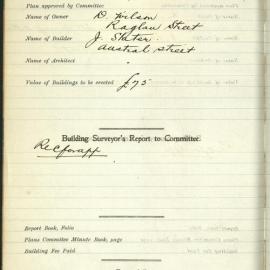 Plan approved by Committee
Name of Owner D. Wilson
Raglan Street
Name of Builder J. Slater.
Austral Street
Name of Architect
Value of Buildings to be erected £75
Building Surveyor's Report to Committee.
Rec for app
Report Book, Folio
Plans Committee Minute Book, page
Building Fee Paid